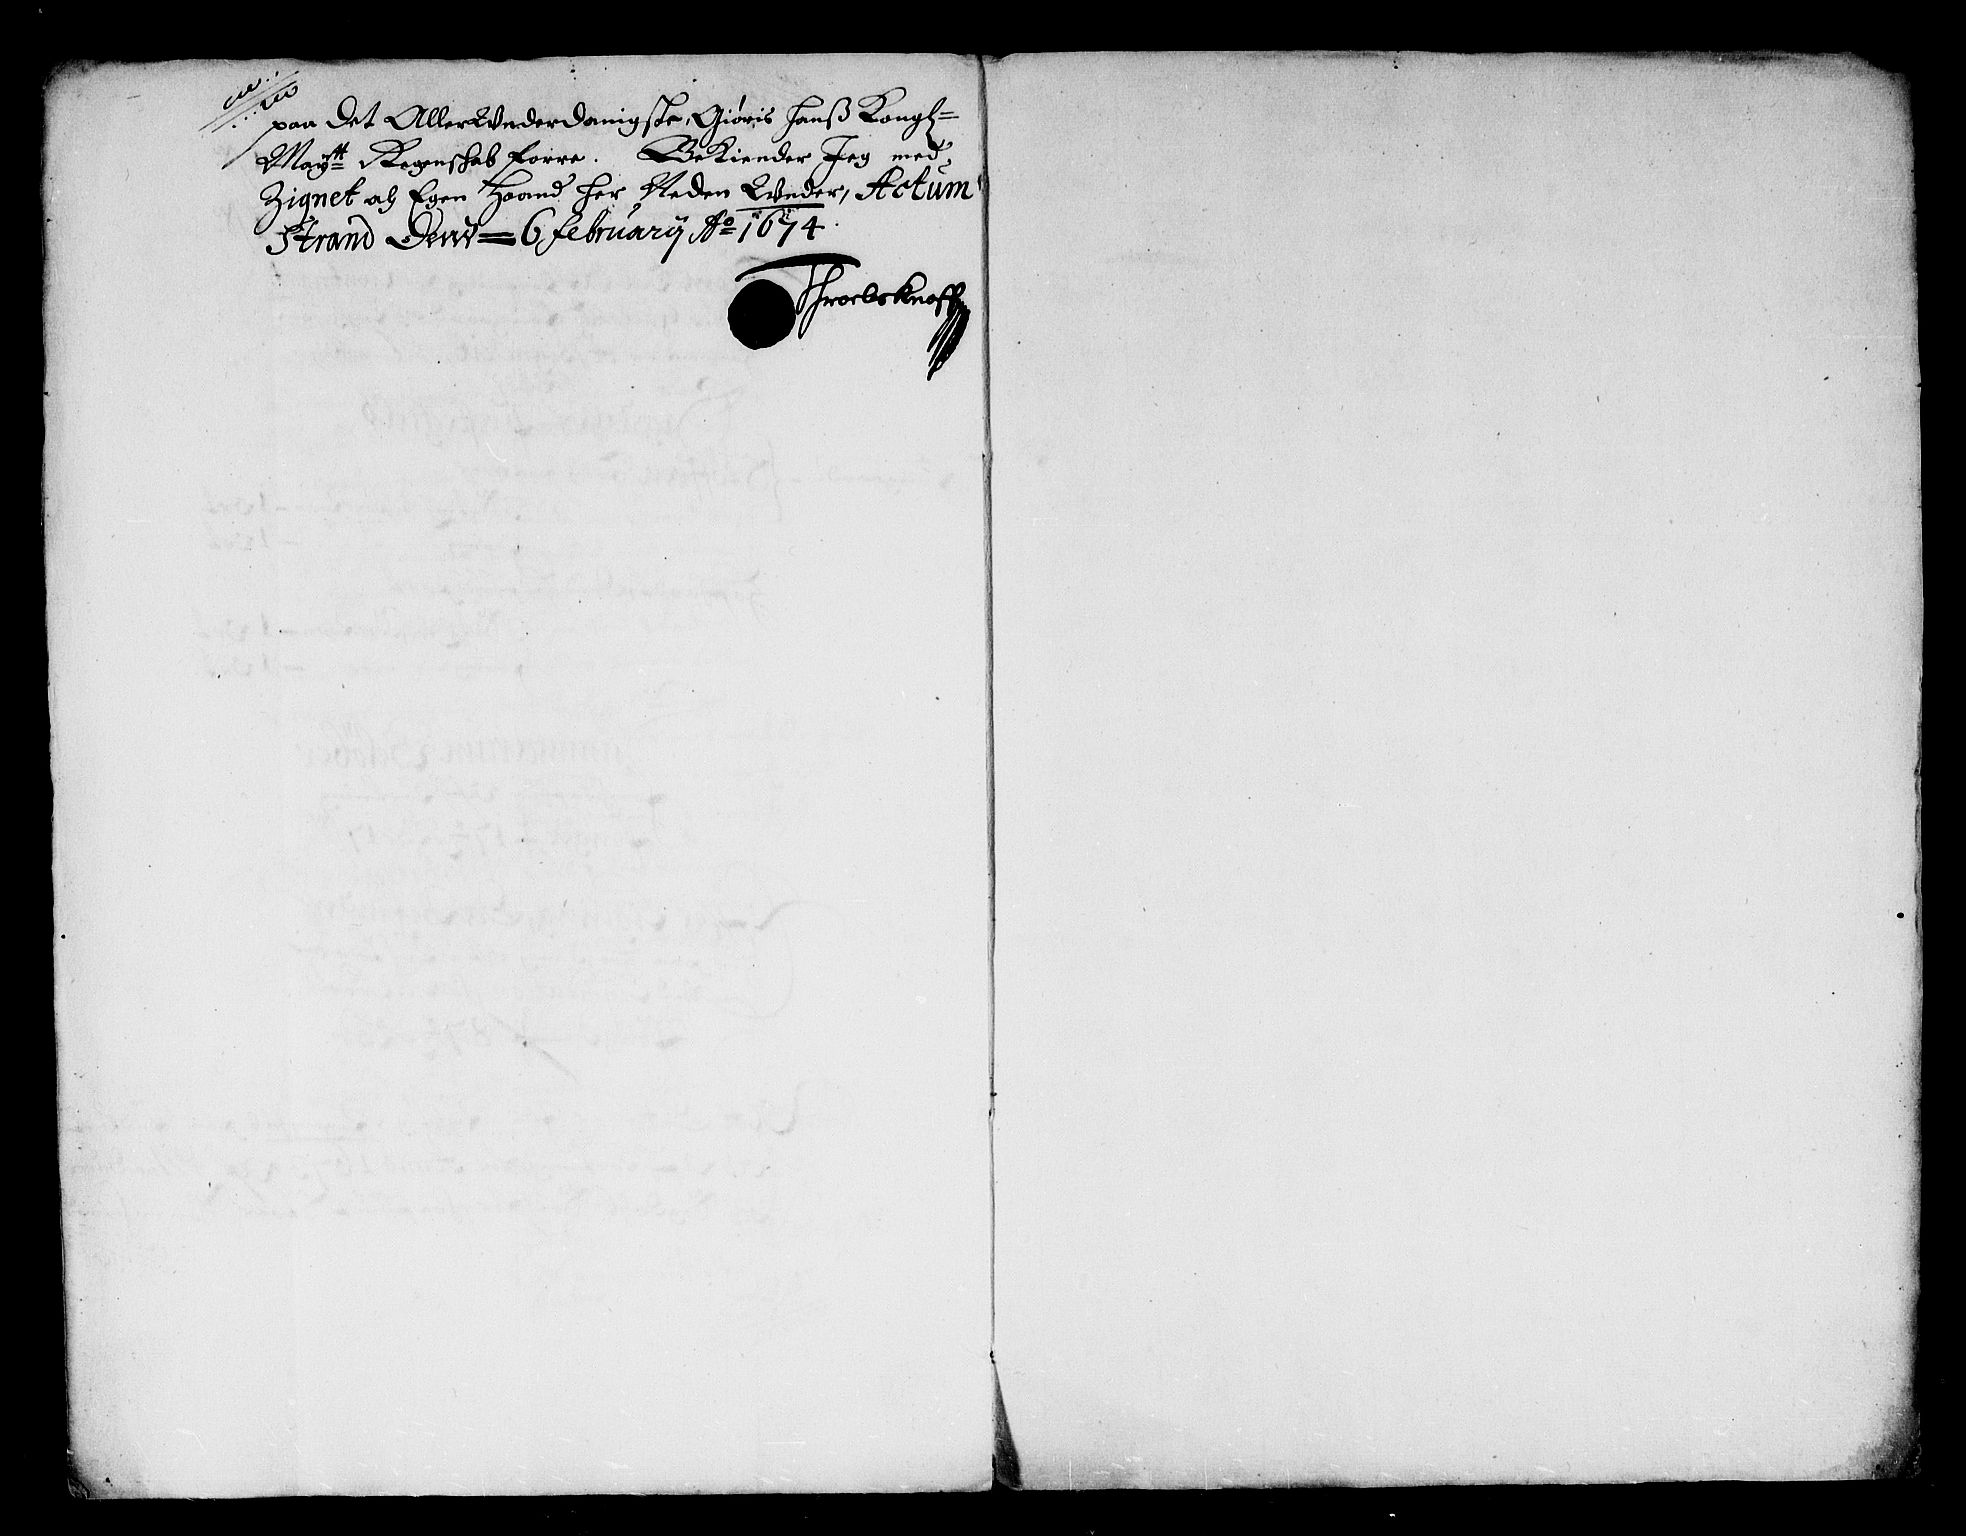 paa det AllerWnderdanigste, Giöris hanß Kongl=
Maytt Regenschab forre. Bekiender Jeg med
Zignet och Egen Haand her Neden Wnder, Actum
Strand Denn 6 februarij Ao 1674